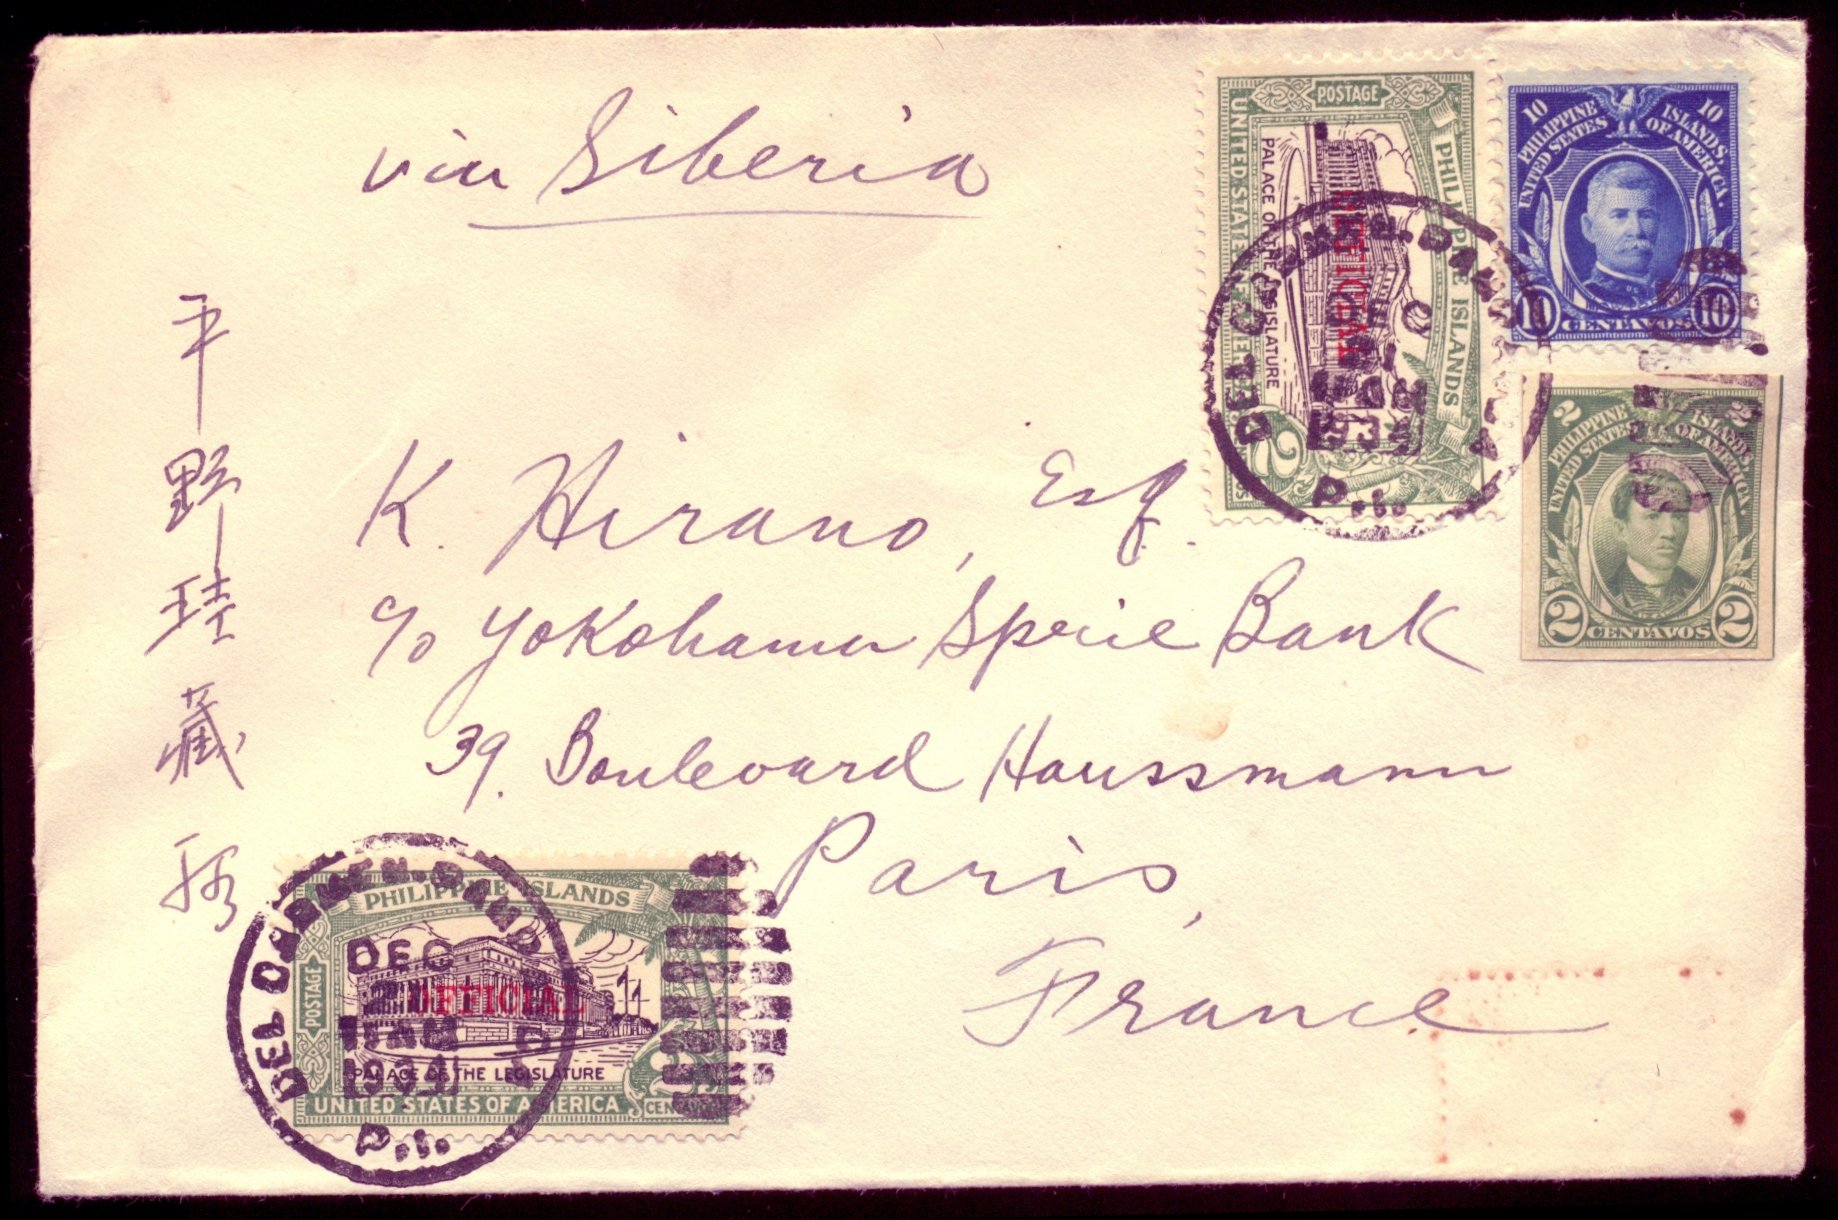 via Siberia
平野珪蔵殿
K. Hirano, Esq.
c/o Yokohama Specie Bank
39. Boulevard Haussmann
Paris,
France
POSTAGE
PHILIPPINE ISLANDS
PALACE OF THE LEGISLATURE
UNITED STATES OF AMERICA
OFFICIAL
2
DEL CARMEN.
P.I.
10 10
PHILIPPINE ISLANDS,
UNITED STATES OF AMERICA.
10 CENTAVOS 10
2 2
PHILIPPINE ISLANDS,
UNITED STATES OF AMERICA.
2 CENTAVOS 2
PHILIPPINE ISLANDS
POSTAGE
OFFICIAL
PALACE OF THE LEGISLATURE
UNITED STATES OF AMERICA
2 CENTAVOS
DEL CARMEN.
DEC
1934
P.I.